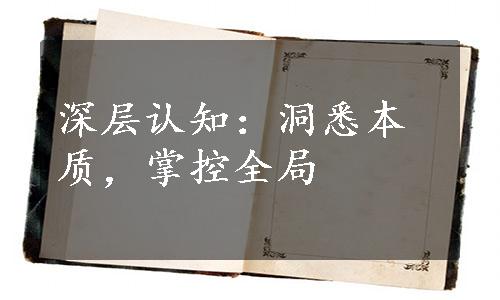 深层认知：洞悉本
质，掌控全局